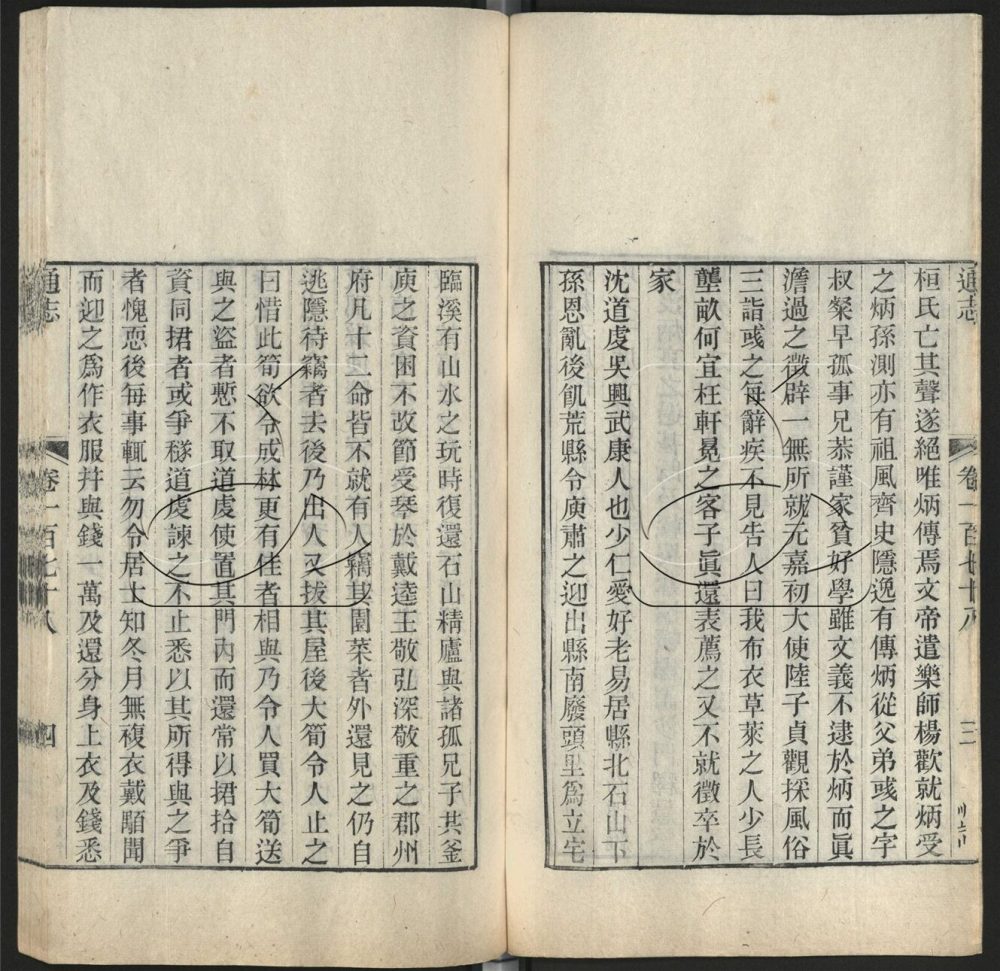 通志
卷一百七十八
三
桓氏亡其聲遂絕唯炳傳焉文帝遣樂師楊歡就炳受
之炳孫測亦有祖風齊史隱逸有傳炳從父弟彧之字
叔粲早孤事兄恭謹家貧好學雖文義不逮於炳而眞
澹過之徵辟一無所就元嘉初大使陸子貞觀採風俗
三詣彧之每辭疾不見告人曰我布衣草萊之人少長
壟畝何宜枉軒冕之客子眞還表薦之又不就徵卒於
家
沈道虔吳興武康人也少仁愛好老易居縣北石山下
孫恩亂後飢荒縣令庾肅之迎出縣南廢頭里爲立宅
臨溪有山水之玩時復還石山精廬與諸孤兄子共釜
庾之資困不改節受琴於戴逵王敬弘深敬重之郡州
府凡十二命皆不就有人竊其園菜者外還見之仍自
逃隱待竊者去後乃出人又拔其屋後大筍令人止之
曰惜此筍欲令成林更有佳者相與乃令人買大筍送
與之盜者慙不取道虔使置其門內而還常以捃拾自
資同捃者或爭穟道虔諫之不止悉以其所得與之爭
者愧恧後每事輒云勿令居士知冬月無複衣戴顒聞
而迎之爲作衣服幷與錢一萬及還分身上衣及錢悉
通志
卷一百七十八
四